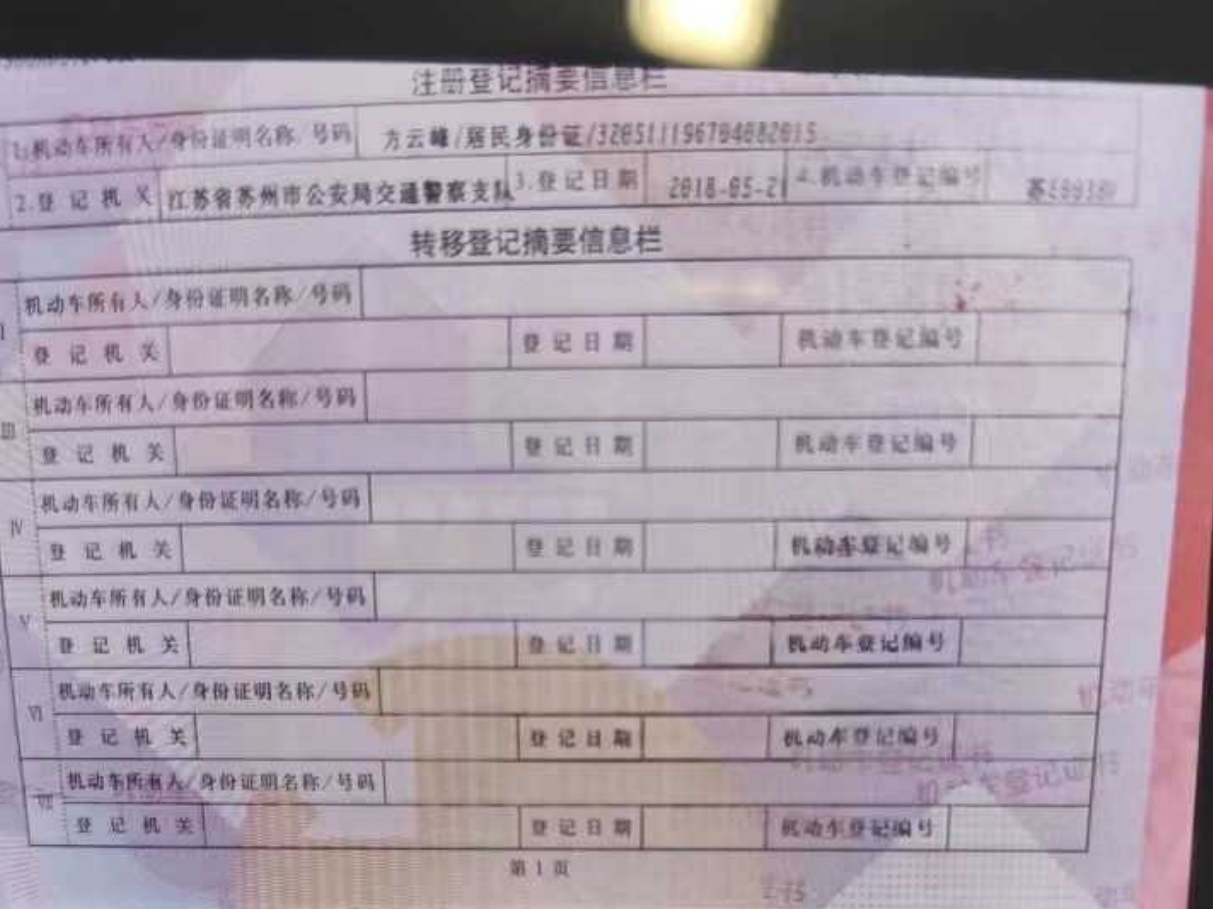 注册登记摘要信息栏
1.机动车所有人/身份证明名称/号码 方云峰/居民身份证/320511196704082015
2.登记机关 江苏省苏州市公安局交通警察支队 3.登记日期 2018-05-21 4.机动车登记编号
转移登记摘要信息栏
机动车所有人/身份证明名称/号码
登记机关 登记日期 机动车登记编号
III 机动车所有人/身份证明名称/号码
登记机关 登记日期 机动车登记编号
IV 机动车所有人/身份证明名称/号码
登记机关 登记日期 机动车登记编号
V 机动车所有人/身份证明名称/号码
登记机关 登记日期 机动车登记编号
VI 机动车所有人/身份证明名称/号码
登记机关 登记日期 机动车登记编号
VII 机动车所有人/身份证明名称/号码
登记机关 登记日期 机动车登记编号
第1页